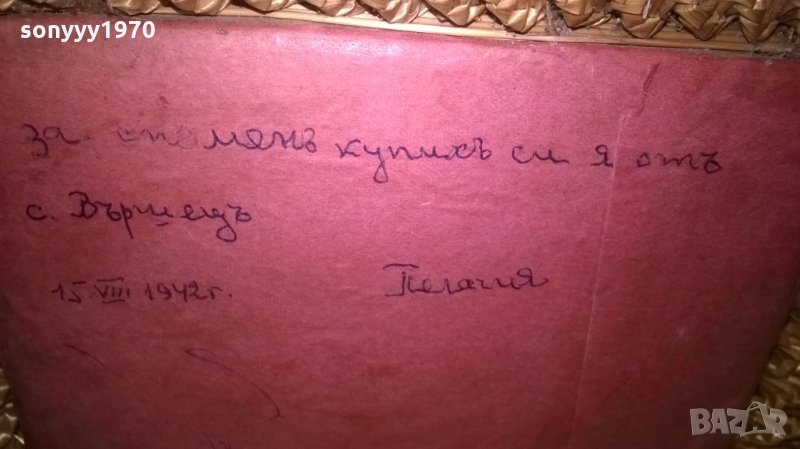 sonyyy1970
за споменъ купихъ си я отъ
с. Вършецъ
15 VIII 1942 г. Пелагия
BAZAR